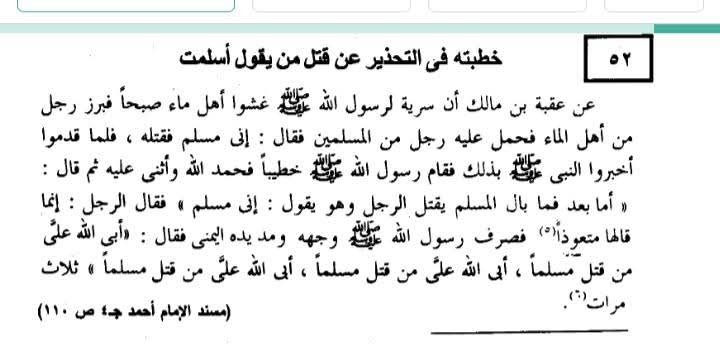 ٥٢ خطبته فى التحذير عن قتل من يقول أسلمت
عن عقبة بن مالك أن سرية لرسول الله ﷺ غشوا أهل ماء صبحاً فبرز رجل
من أهل الماء فحمل عليه رجل من المسلمين فقال : إنى مسلم فقتله ، فلما قدموا
أخبروا النبى ﷺ بذلك فقام رسول الله ﷺ خطيباً فحمد الله وأثنى عليه ثم قال :
« أما بعد فما بال المسلم يقتل الرجل وهو يقول : إنى مسلم » فقال الرجل : إنما
قالها متعوذاً(٥) فصرف رسول الله ﷺ وجهه ومد يده اليمنى فقال : «أبى الله علىَّ
من قتل مسلماً ، أبى الله علىَّ من قتل مسلماً ، أبى الله علىَّ من قتل مسلماً » ثلاث
مرات(٦).
(مسند الإمام أحمد جـ٤ ص ١١٠)